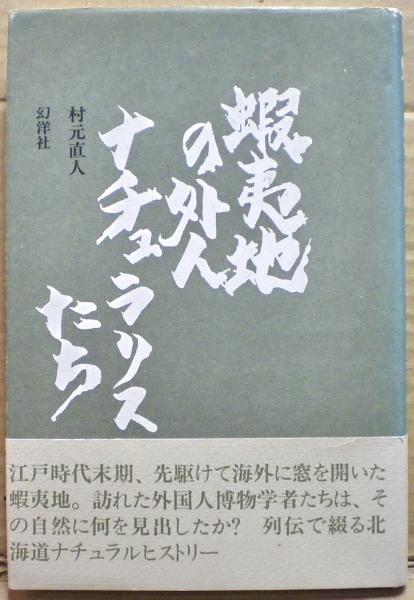 蝦夷地
の外人
ナチュラリス
たち
村元直人
幻洋社
江戸時代末期、先駆けて海外に窓を開いた
蝦夷地。訪れた外国人博物学者たちは、そ
の自然に何を見出したか?　列伝で綴る北
海道ナチュラルヒストリー